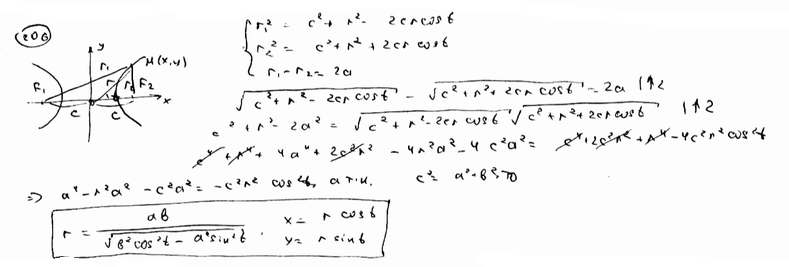 206
y
M(x,y)
r₁
F₁ r r₂ F₂
c c x
{ r₁² = c² + r² - 2cr cos t
r₂² = c² + r² + 2cr cos t
r₁ - r₂ = 2a
√(c² + r² - 2cr cos t) - √(c² + r² + 2cr cos t) = 2a |↑2
c² + r² - 2a² = √(c² + r² - 2cr cos t) √(c² + r² + 2cr cos t) |↑2
c⁴ + r⁴ + 4a⁴ + 2c²r² - 4r²a² - 4c²a² = c⁴ + 2c²r² + r⁴ - 4c²r² cos²t
⇒ a⁴ - r²a² - c²a² = -c²r² cos²t, а т.к. c² = a² + b², то
r = ab / √(b² cos²t - a² sin²t) . x = r cos t
y = r sin t